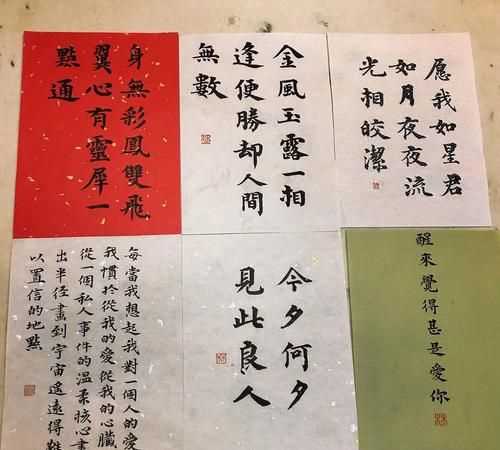 身無彩鳳雙飛
翼心有靈犀一
點通
金風玉露一相
逢便勝却人間
無數
愿我如星君
如月夜夜流
光相皎潔
每當我想起我對一個人的愛
我慣於從我的愛從我的心臟
從一個私人事件的溫柔核心畫
出半径畫到宇宙遙遠得難
以置信的地點
今夕何夕
見此良人
醒來覺得甚是愛你